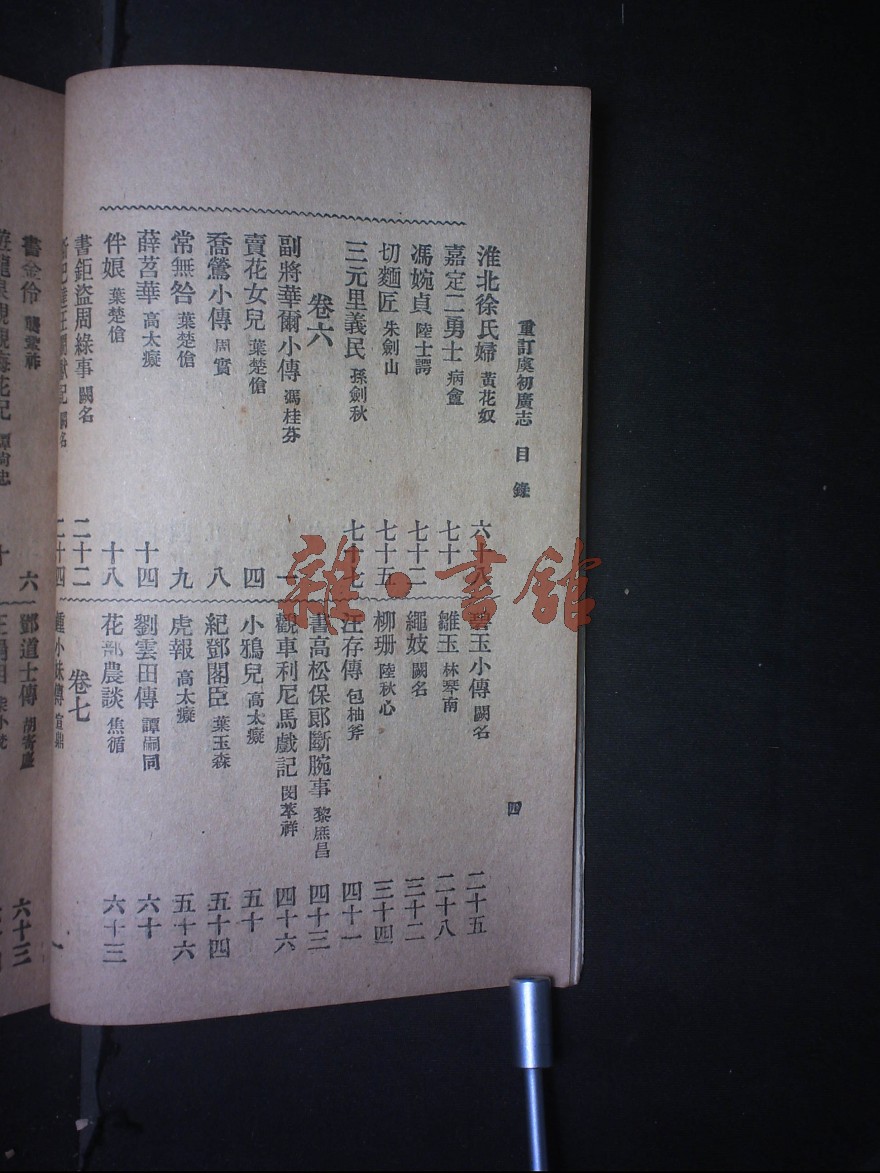 重訂虞初廣志 目錄 四
淮北徐氏婦 黃花奴 六十八
嘉定二勇士 病盦 七十
馮婉貞 陸士諤 七十二
切麵匠 朱劍山 七十五
三元里義民 孫劍秋 七十七
卷六
副將華爾小傳 馮桂芬 一
賣花女兒 葉楚傖 四
喬鶯小傳 周實 八
常無咎 葉楚傖 九
薛苕華 高太癡 十四
伴娘 葉楚傖 十八
書鉅盜周綠事 闕名 二十二
闕名 二十四
碧玉小傳 闕名 二十五
雛玉 林琴南 二十八
繩妓 闕名 三十二
柳珊 陸秋心 三十四
汪存傳 包柚斧 四十一
書高松保郎斷腕事 黎庶昌 四十三
觀車利尼馬戲記 閔萃祥 四十六
小鴉兒 高太癡 五十
紀鄧閣臣 葉玉森 五十四
虎報 高太癡 五十六
劉雲田傳 譚嗣同 六十
花部農談 焦循 六十三
卷七
鍾小妹傳 宣鼎 一
書金伶 龔鞏祚 六
鄧道士傳 胡寄塵 六十三
雜·書館